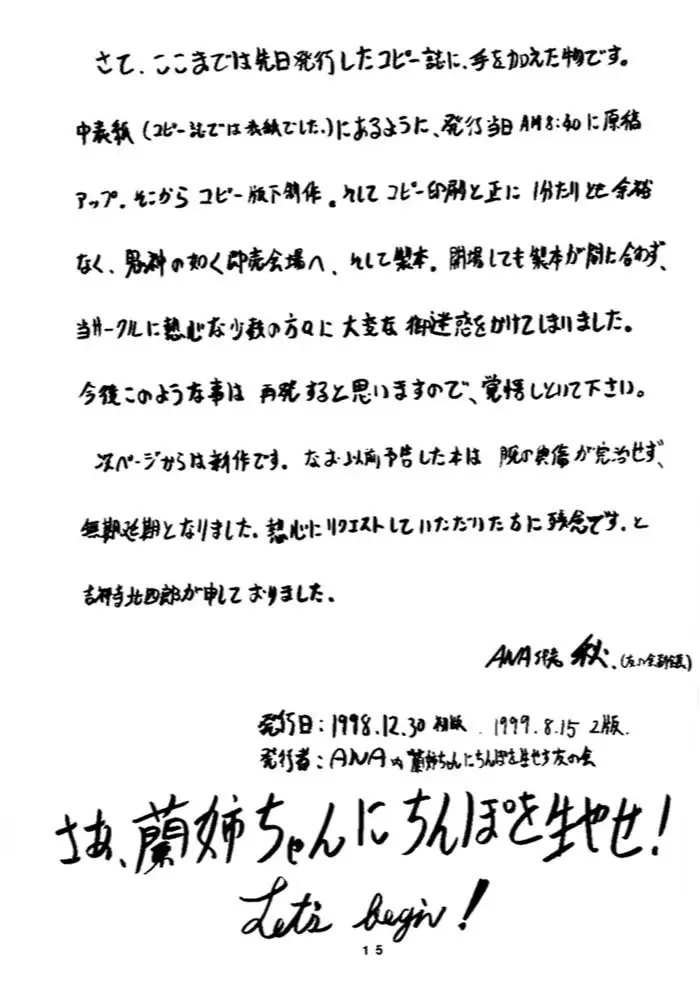 さて、ここまでは先日発行したコピー誌に、手を加えた物です。
中表紙(コピー誌では表紙でした。)にあるように、発行当日AM8:40に原稿
アップ。そこからコピー版下制作。そしてコピー印刷と正に1分たりとも余裕
なく、鬼神の如く即売会場へ、そして製本。開場しても製本が間に合わず、
当サークルに熱心な少数の方々に大変な御迷惑をかけてしまいました。
今後このような事は再発すると思いますので、覚悟しといて下さい。
次ページからは新作です。なお以前予告した本は腕の負傷が完治せず、
無期延期となりました。熱心にリクエストしていただいた方に残念です。と
吉祥寺北四郎が申しておりました。
ANA 秋.
発行日:1998.12.30 初版. 1999.8.15 2版.
発行者:ANA内 蘭姉ちゃんにちんぽを生やす友の会
さあ、蘭姉ちゃんにちんぽを生やせ!
Let's begin!
15